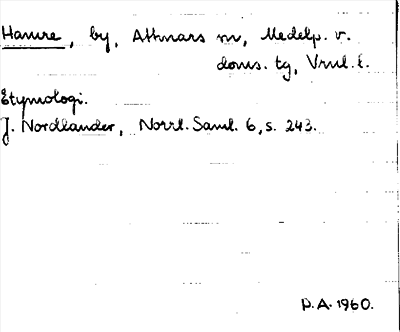 Hamre, by, Attmars sn, Medelp. v.
doms. tg, Vrnl. l.
Etymologi.
J. Nordlander, Norrl. Saml. 6, s. 243.
P.A. 1960.